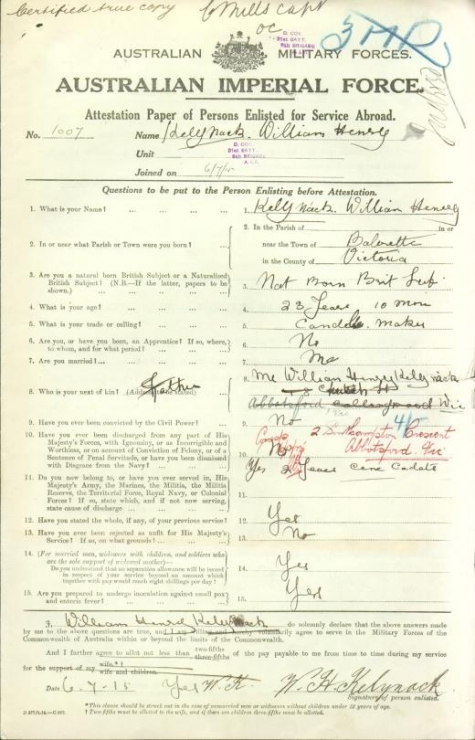 Certified true copy C Mills Capt
OC
D. COY.
31st BATT.
8th BRIGADE
3MD
AUSTRALIAN MILITARY FORCES.
AUSTRALIAN IMPERIAL FORCE.
Attestation Paper of Persons Enlisted for Service Abroad.
No. 1007 Name Kellynack William Henry
D. COY.
31st BATT.
8th BRIGADE
A.I.F.
Unit
Joined on 6/7/15
Questions to be put to the Person Enlisting before Attestation.
1. What is your Name? 1. Kellynack William Henry
2. In or near what Parish or Town were you born? 2. In the Parish of in or
near the Town of
in the County of Victoria
3. Are you a natural born British Subject or a Naturalized British Subject? (N.B.—If the latter, papers to be shown.) 3. Nat Born Brit Sub.
4. What is your age? 4. 23 Years 10 mon
5. What is your trade or calling? 5. Candle maker
6. Are you, or have you been, an Apprentice? If so, where, to whom, and for what period? 6. No
7. Are you married? 7. No
8. Who is your next of kin? (Address to be stated) Father 8. Mr William Henry Kellynack
Abbotsford Collingwood Vic
45 Crescent
Abbotsford. Vic
9. Have you ever been convicted by the Civil Power? 9. No
10. Have you ever been discharged from any part of His Majesty's Forces, with Ignominy, or as Incorrigible and Worthless, or on account of Conviction of Felony, or of a Sentence of Penal Servitude, or have you been dismissed with Disgrace from the Navy? 10. No
11. Do you now belong to, or have you ever served in, His Majesty's Army, the Marines, the Militia, the Militia Reserve, the Territorial Force, Royal Navy, or Colonial Forces? If so, state which, and if not now serving, state cause of discharge 11. Yes 2 Years Cadets
12. Have you stated the whole, if any, of your previous service? 12. Yes
13. Have you ever been rejected as unfit for His Majesty's Service? If so, on what grounds? 13. No
14. (For married men, widowers with children, and soldiers who are the sole support of widowed mother)—
Do you understand that no separation allowance will be issued in respect of your service beyond an amount which together with pay would reach eight shillings per day? 14. Yes
15. Are you prepared to undergo inoculation against small pox and enteric fever? 15. Yes
I, William Henry Kelynack do solemnly declare that the above answers made
by me to the above questions are true, and I am willing and hereby voluntarily agree to serve in the Military Forces of the
Commonwealth of Australia within or beyond the limits of the Commonwealth.
And I further agree to allot not less than two-fifths three-fifths of the pay payable to me from time to time during my service
for the support of my wife*† wife and children.
Date 6-7-15 W. H. Kelynack
Signature of person enlisted.
*This clause should be struck out in the case of unmarried men or widowers without children under 18 years of age.
† Two-fifths must be allotted to the wife, and if there are children three-fifths must be allotted.